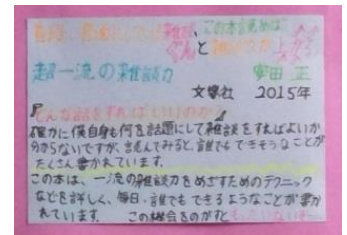 超一流の雑談力
安田 正
文響社 2015年
『どんな話をすればいいのか?』
確かに僕自身も何を話題にして雑談をすればよいか
分からないですが、読んでみると、誰でもできそうなことが
たくさん書かれています。
この本は、一流の雑談力をめざすためのテクニック
などを詳しく、毎日、誰でもできるようなことが書か
れています。この機会をのがすと